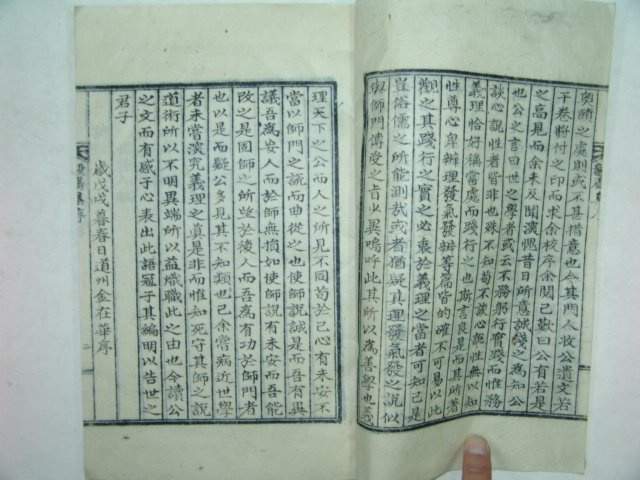 奧賾之處則或不甚措意也今其門人收公遺文若
干卷將付之印而求余校序余閱已歎曰公有若是
之高見而余未及聞深愢昔日所意誠淺之為知公
也公之言曰世之學者或云不務躬行實踐而惟務
談心說性者皆非也殊不知苟不談心說性無以知
義理恰好稱當處而踐行之也斯言良是而其所著
性尊心卑辨理發氣發辨等篇皆的確不可易以此
觀之其踐行之實之必衷於義理之當者可知已是
豈俗儒之所能測哉或者猶疑其理發氣發之說似
與師門傳受之旨少異嗚呼此其所以為善學也義
理天下之公而人之所見不同苟於己心有未安不
當以師門之說而曲從之也使師說誠是而吾有異
議吾為妄人而於師無損如使師說有未安而吾能
改之是固師之所望於後人而吾為有功於師門者
也以是而疑公多見其不知類也已余嘗病近世學
者未嘗深究義理之真是非而惟知死守其師之說
道術所以不明異端所以益熾職此之由也今讀公
之文而有感于心表出此語冠于其編明以告世之
君子
歲戊戌暮春日道州金在華序
二